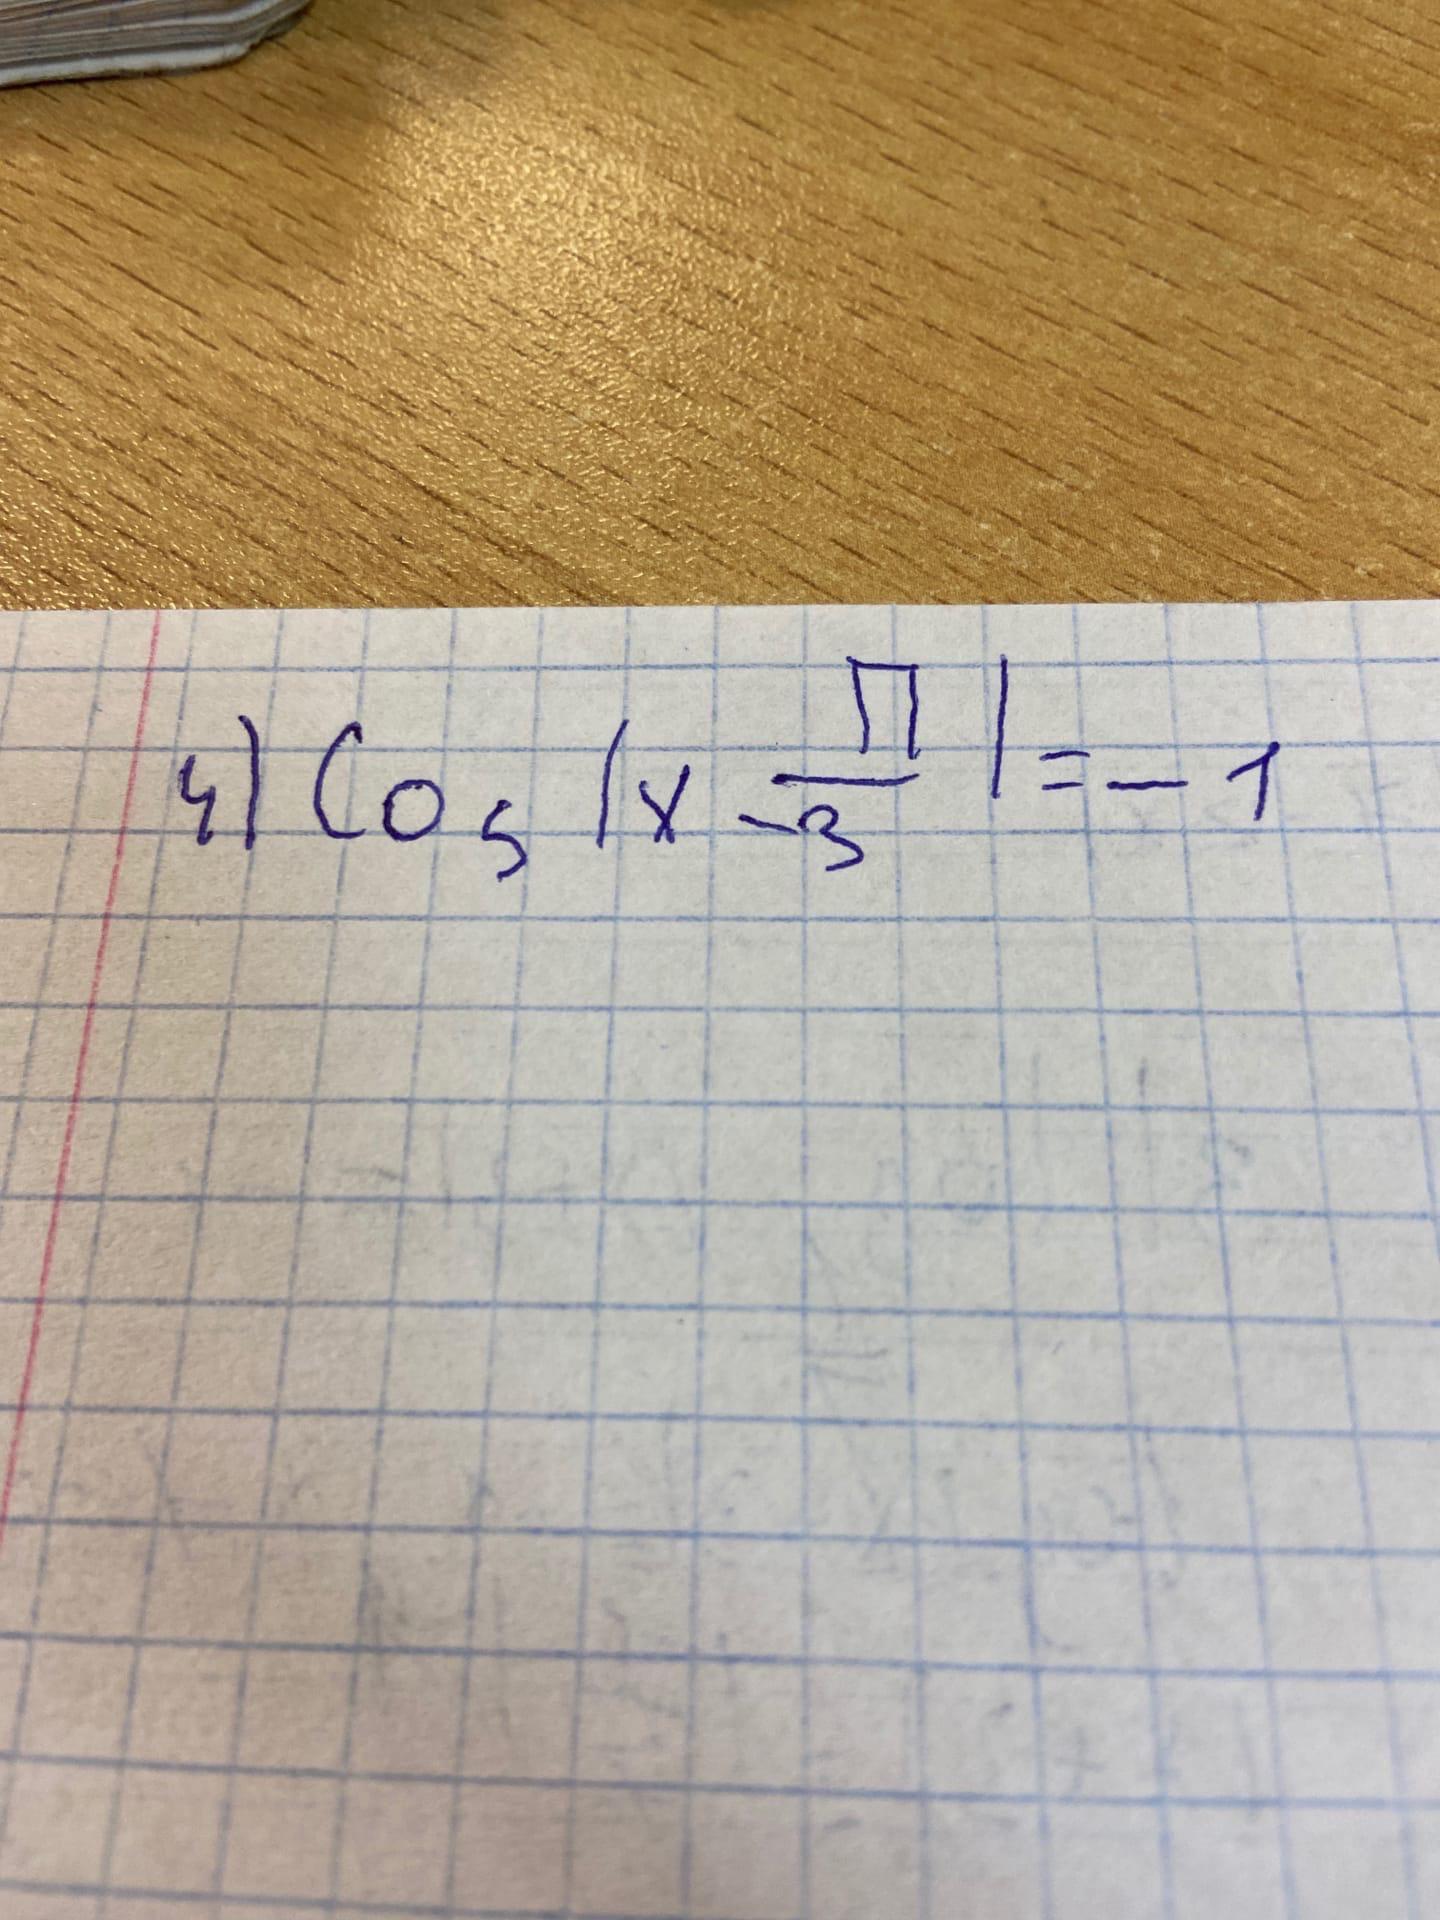 4) Cos (x - П/3) = -1